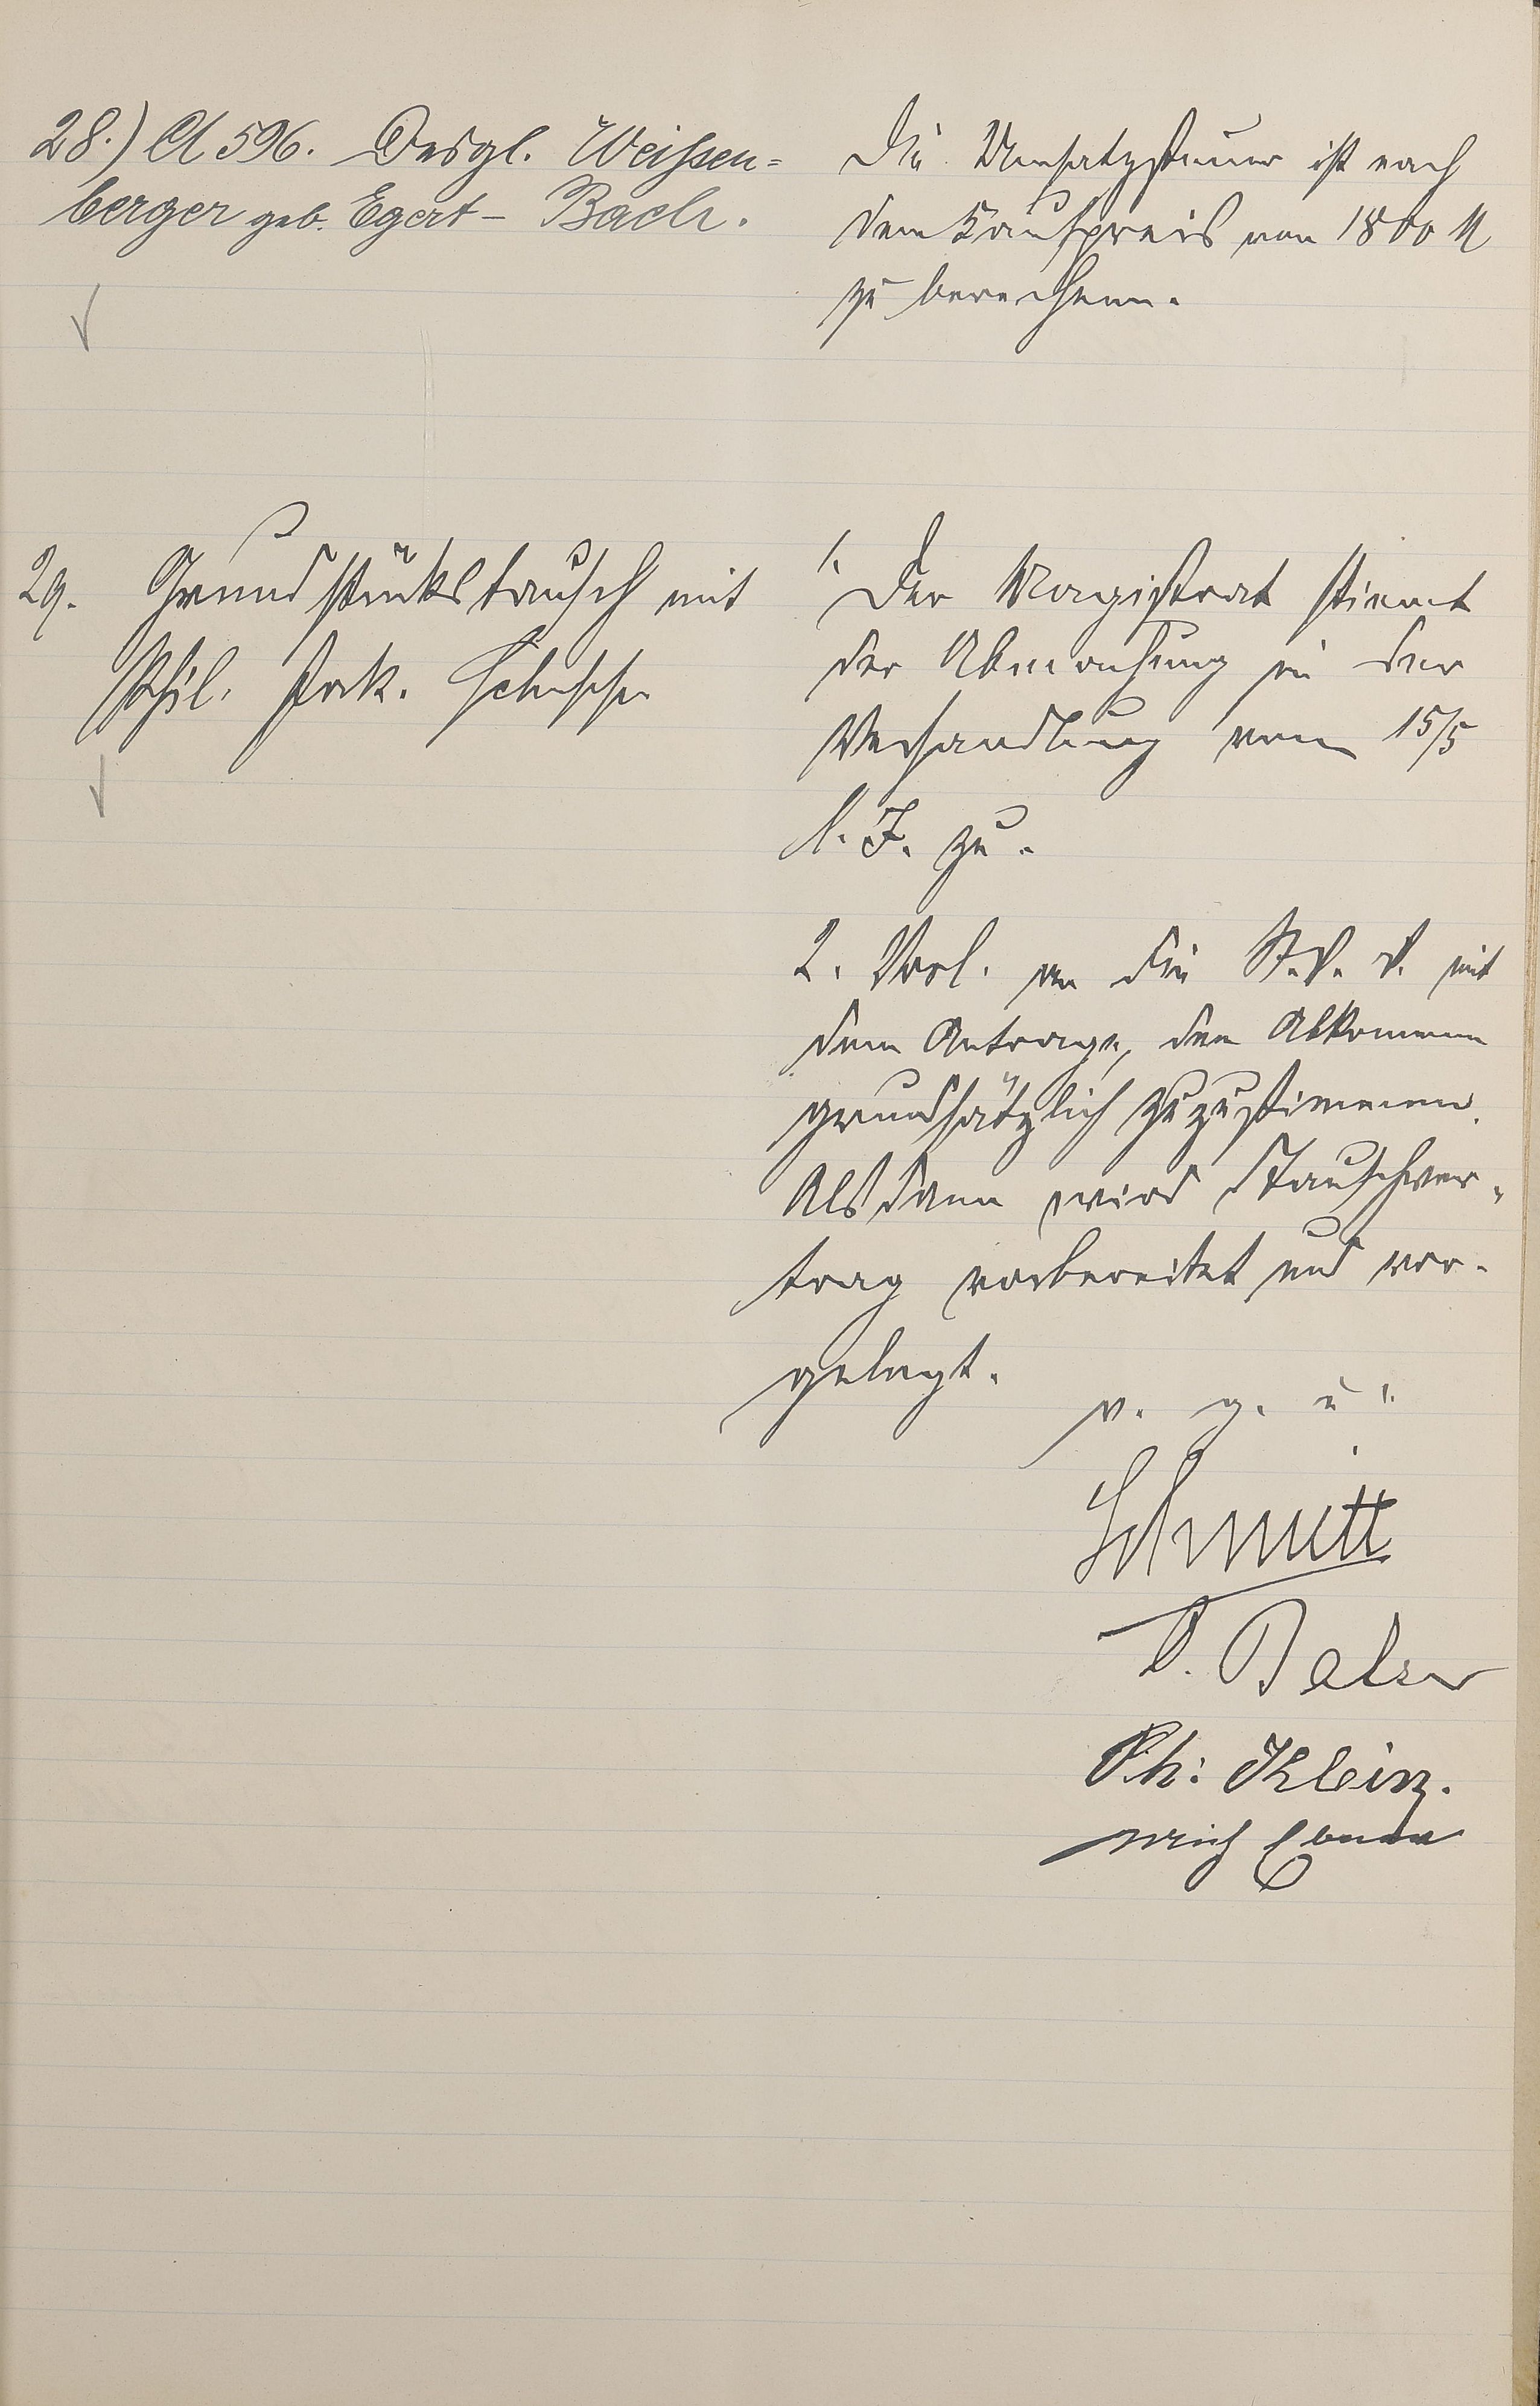 28.) A 596. Desgl. Weissen=
berger geb. Egert - Bach.
Die Umsatzsteuer ist nach
dem Kaufpreis von 1800 M
zu berechnen.
29. Grundstückstausch mit
Phil. Jak.
1. Der Magistrat stimmt
der Abmachung in der
Verhandlung vom 15/5
l. J. zu.
2. Vorl. an die St. V. V. mit
dem Antrage, dem Abkommen
grundsätzlich zuzustimmen.
Alsdann wird Tauschver-
trag vorbereitet und vor-
gelegt.
v. g. u.
Schmitt
D. Balzer
Ph: Klein.